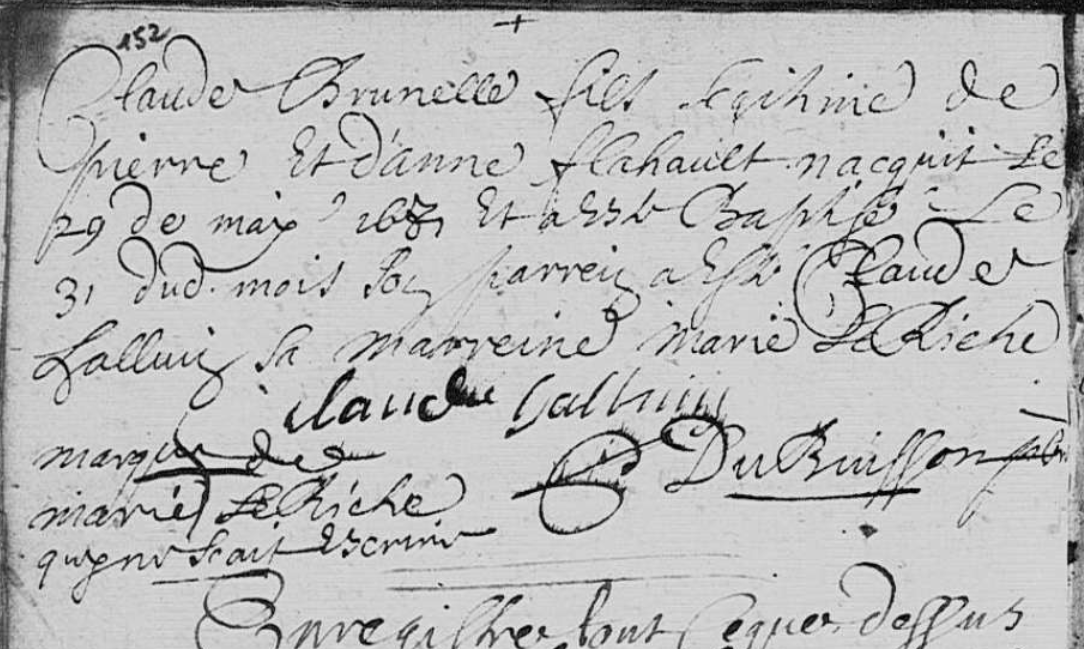 152
Claude Brunelle fils legitime de
pierre Et d'anne flahault nacquit Le
29 de may 167 Et a Esté Baptisé Le
31 dud. mois Son parrein a Esté Claude
Lalluin sa marreine marie Le Riche
claude lalluin
marque de DuBuisson pbr
marie Le Riche
qui ne scait Escrire
Enregistrer tout ce que dessus